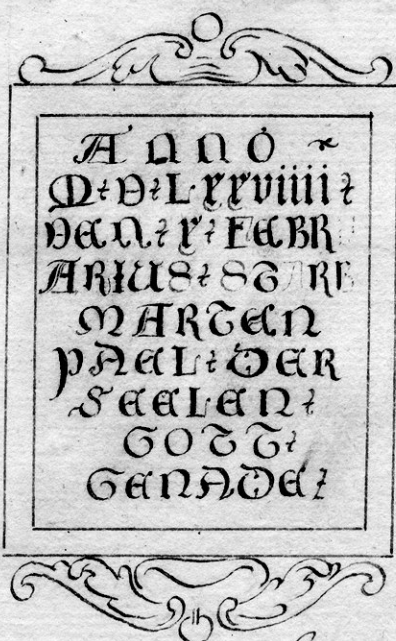 ANNO
M:D:LXXVIIII:
DEN:X:FEBR
ARIUS:STARB
MARTEN
PAEL:DER
SEELEN:
GOTT:
GENADE: